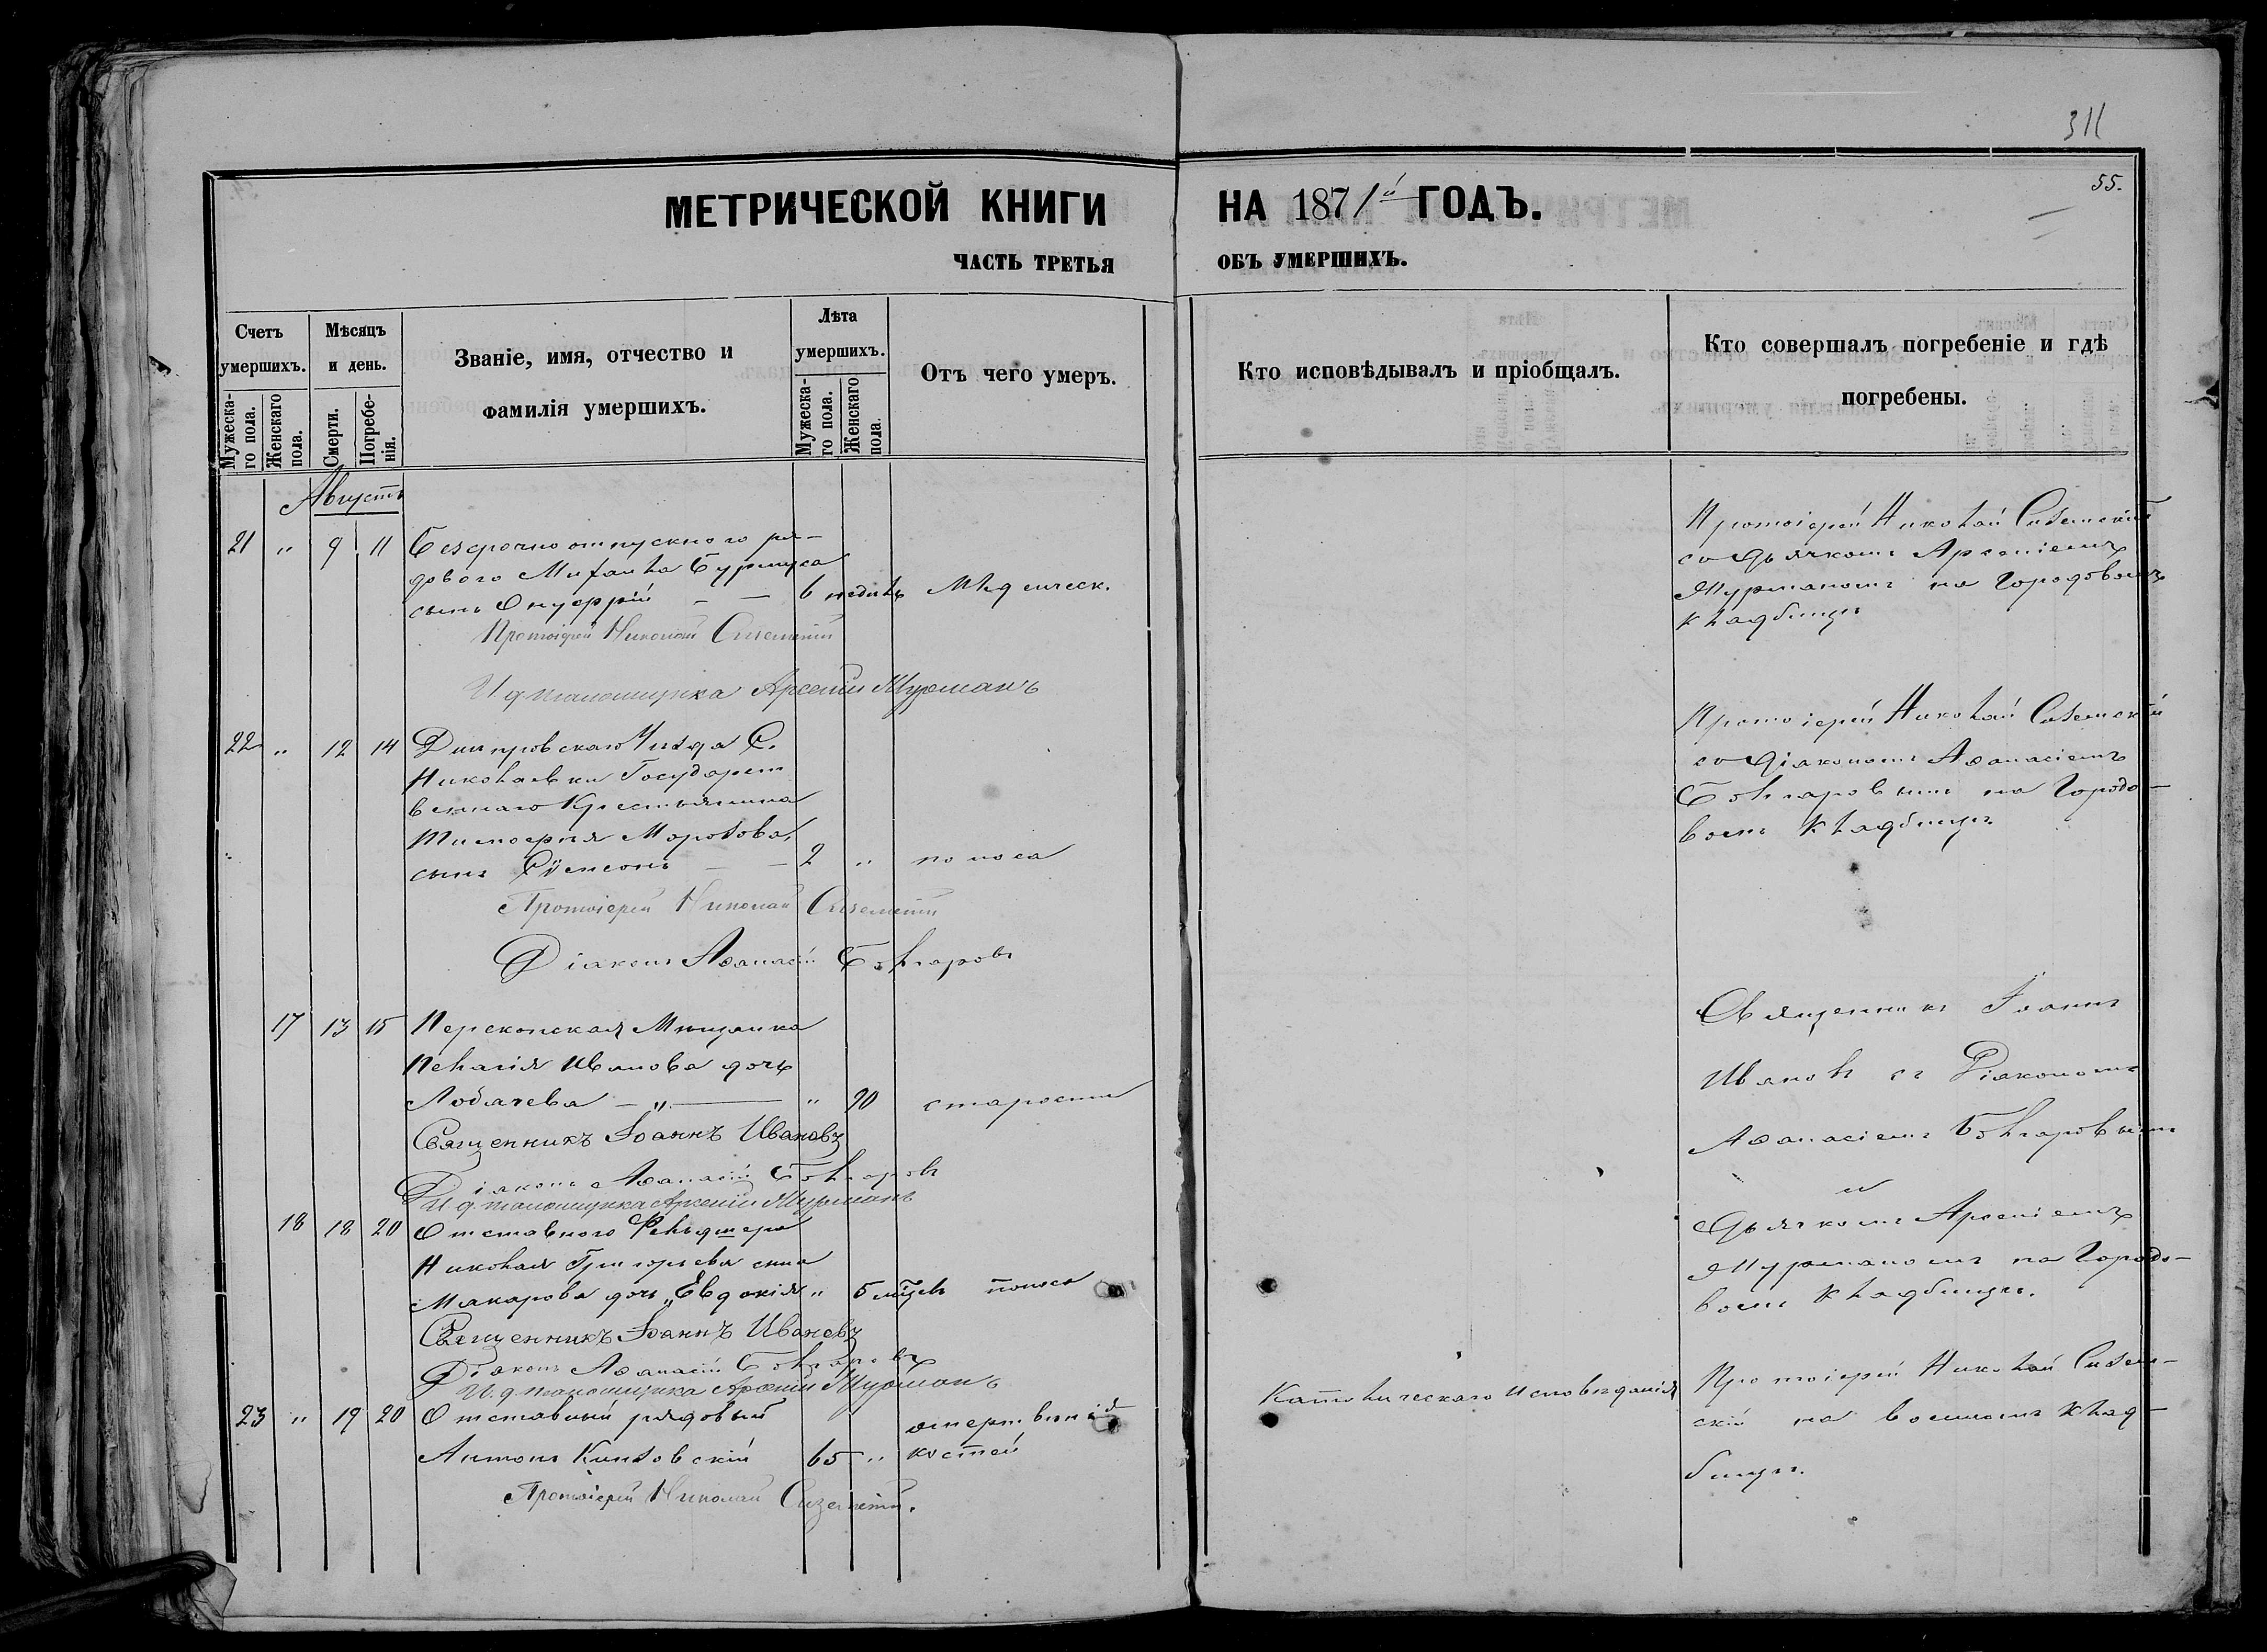 311
55.
МЕТРИЧЕСКОЙ КНИГИ НА 1871й ГОДЪ.
ЧАСТЬ ТРЕТЬЯ ОБЪ УМЕРШИХЪ.
Счетъ умершихъ.
Мужескаго пола.
Женскаго пола.
Мѣсяцъ и день.
Смерти.
Погребенія.
Званіе, имя, отчество и
фамилія умершихъ.
Лѣта умершихъ.
Мужескаго пола.
Женскаго пола.
Отъ чего умеръ.
Кто исповѣдывалъ и пріобщалъ.
Кто совершалъ погребеніе и гдѣ
погребены.
Августъ
21 " 9 11 Безсрочно отпускного ря-
дового Михаила
сынъ Онуфрій — — 6 недѣль
Протоіерей Николай Сиземскій
И д пономщика Арсеній Мурманъ
Протоіерей Николай Сиземскій
съ Дьячкомъ Арсеніемъ
Мурманомъ на Городовомъ
кладбищѣ
22 " 12 14 Днѣпровскаго Уѣзда С.
Николаевки Государст
веннаго Крестьянина
Тимофея Морозова,
сынъ Сѵмеонъ — — 2 " поноса
Протоіерей Николай Сиземскій
Діаконъ Аѳанасій Болгаровъ
Протоіерей Николай Сиземскій
съ Діакономъ Аѳанасіемъ
Болгаровымъ на Городо-
вомъ кладбищѣ.
17 13 15 Перекопская Мѣщанка
Пелагія Иванова дочь
Лобачева — " — " 90 старости
Священникъ Іоаннъ Ивановъ
Діаконъ Аѳанасій Болгаровъ
И. д. пономщика Арсеній Мурманъ
Священникъ Іоаннъ
Ивановъ съ Діакономъ
Аѳанасіемъ Болгаровымъ
и
Дьячкомъ Арсеніемъ
Мурманомъ на Городо-
вомъ кладбищѣ.
18 18 20 Отставного Фельдшера
Николая Григорьева сына
Макарова дочь "Евдокія" " 5 мѣсцевъ поноса
Священникъ Іоаннъ Ивановъ
Діаконъ Аѳанасій Болгаровъ
И. д. пономщика Арсеній Мурманъ
23 " 19 20 Отставный рядовый
Антонъ Кинзовскій 65 " омертвенія
костей
Протоіерей Николай Сиземскій.
Католическаго исповѣданія
Протоіерей Николай Сизем-
скій на военномъ клад-
бищѣ.